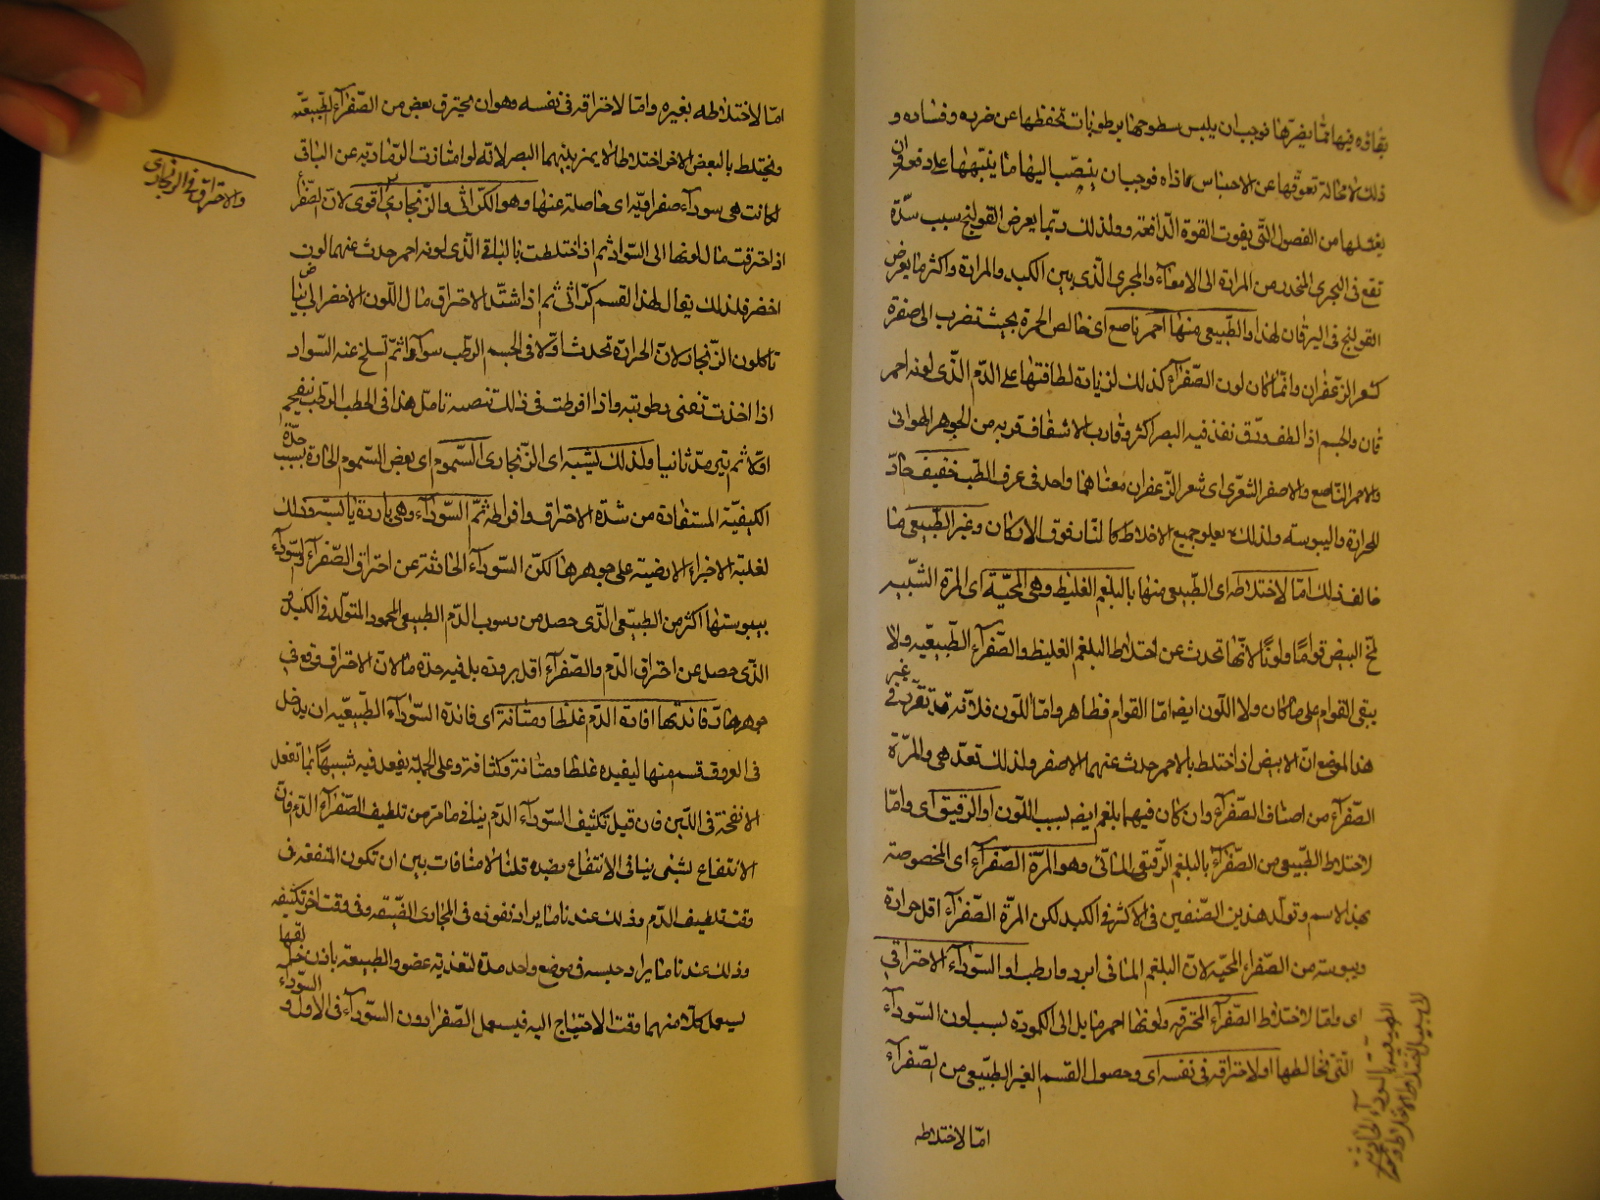 بقاؤه فيها مما يضرّها فوجب ان يلبس سطوحها برطوبات تحفظها عن ضرره وفساده و
ذلك لا محالة تعوقها عن الاحساس فوجب ان ينصب اليها ما ينبهها على دفع
يغسلها من الفضول التى يفوت القوة الدّافعة ولذلك ربّما يعرض القولنج بسبب سدّة
تقع فى المجرى المنحدر من المرارة الى الامعآء والمجرى الّذى بين الكبد والمرارة واكثر ما يعرض
القولنج فى اليرقان لهذا والطّبيعى منها احمر ناصع اى خالص الحمرة بحيث تضرب الى صفرة
كشعر الزعفران وانّما كان لون الصّفرآء كذلك لزيادة لطافتها على الدّم الّذى لونه احمر
قان والجسم اذا لطف ورق نفذ فيه البصر اكثر وقارب الاشفاف قربه من الجوهر الهوائى
والاحمر النّاصع والاصفر الشّعرى اى شعر الزعفران معناهما واحد فى عرف الطّب خفيف حادّ
للحرارة واليبوسة ولذلك يعلو جميع الاخلاط كالنّار فوق الاركان وغير الطّبيعى ما
خالف ذلك امّا لاختلاطه اى الطّبيعى منها بالبلغم الغليظ وهى المحيّة اى المرة الشّبيه
لمح البيض قواما ولونا لانّها تحدث عن اختلاط البلغم الغليظ والصّفرآء الطّبيعيّه ولا
يبقى القوام على ما كان ولا اللون ايضا امّا القوام فظاهر وامّا اللون فلانّه قد تقرّر فى غير
هذا الموضع انّ الابيض اذا اختلط بالاحمر حدث عنهما الاصفر ولذلك تعدّ هى والمرّة
الصّفرآء من اصناف الصّفرآء وان كان فيهما بلغم ايضا بسبب اللون او الرّقيق اى وامّا
لاختلاط الطّبيعى من الصّفرآء بالبلغم الرّقيق المائى وهو المرة الصّفرآء اى المخصوصة
بهذا الاسم وتولد هذين الصّنفين فى الاكثر فى الكبد لكن المرّة الصّفرآء اقل حرارة
ويبوسة من الصّفراء المحيّة لانّ البلغم المائى ابرد وارطب او السّودآء الاحتراقى
اى وامّا لاختلاط الصّفرآء المحترقة ولونها احمر مايل الى الكمودة لسبب لون السّودآء
التى تخالطها او لاحتراقه فى نفسه اى وحصول القسم الغير الطّبيعى من الصّفرآء
امّا لاختلاطه
امّا لاختلاطه بغيره وامّا لاحتراقه فى نفسه وهو ان يحترق بعض من الصّفرآء الطبيعيّة
ويختلط بالبعض الاخر اختلاطا لا يميز بينهما البصر لانه لو امتازت الرّماديّة عن الباقى
لكانت هى سودآء صفراويّة اى حاصلة عنها وهو الكرّاثى والزّنجارى اقوى لانّ الصّفرآء
والاحتراق فى الزنجارى
اذا احترقت مال لونها الى السّواد ثم اذا اختلطت بالباقى الّذى لونه احمر حدث عنهما لون
اخضر فلذلك يقال لهذا القسم كرّاثى ثم اذا اشتدّ الاحتراق مال اللون الاخضر الى بياض
ما كلون الزّنجار لانّ الحرارة تحدث اوّلا فى الجسم الرّطب سوادا ثمّ تسلخ عنه السّواد
اذا اخذت تفنى رطوبته واذا افرطت فى ذلك تأمل هذا فى الحطب الرطب ينفحم
اوّلا ثم يترمّد ثانيا ولذلك يشبه اى الزّنجارى السّموم اى بعض السّموم الحارة بسبب حدّة
الكيفيّة المستفادة من شدّة الاحتراق وافراطه ثمّ السّودآء وهى باردة يابسة وذلك
لغلبة الاجزاء الارضية على جوهرها لكنّ السّودآء الحادثة عن احتراق الصّفرآء والسّودآء
يبوستها اكثر من الطبيعى الّذى حصل من رسوب الدّم الطبيعى المحمود المتولّد فى الكبد و
الّذى حصل عن احتراق الدّم والصّفرآء اقل برودة بل فيه حدّة ما لانّ الاحتراق
جوهرها وفائدتها افادة الدّم غلظا ومتانة اى فائدة السّودآء الطّبيعيّه ان يدخل
فى العروق قسم منها ليفيده غلظا ومتانة وكثافة وعلى الجملة يفعل فيه شبيها بما تفعل
الانفحة فى اللّبن فان قيل تكثيف السّودآء الدّم ينافى ما مرّ من تلطيف الصّفرآء الدّم فانّ
الانتفاع بشئ ينافى الانتفاع بضده قلنا لا منافات بين ان تكون المنفعة فى
وقت تلطيف الدّم وذلك عندنا ما يراد نفوذه فى المجارى الضّيّقه وفى وقت اخر تكثيفه
وذلك عندنا ما يراد حبسه فى موضع واحد مدة لتغذية عضو والطبيعة باذن خالقها
يستعمل كلّا منهما وقت الاحتياج اليه فيستعمل الصّفرا دون السّودآء فى الاوّل و السّودآء